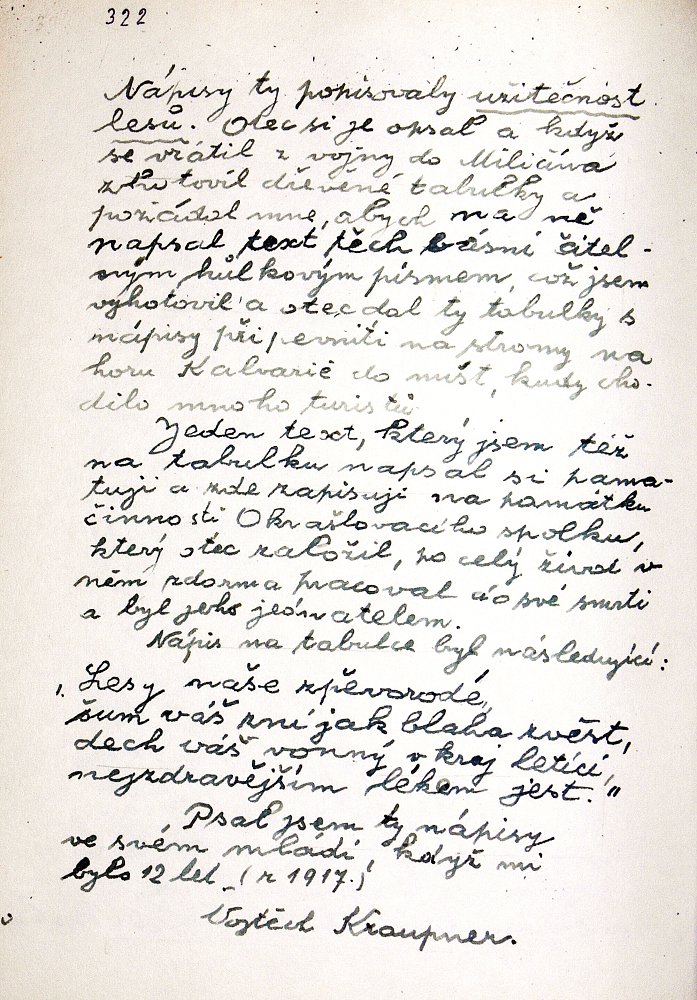 322
Nápisy ty popisovaly užitečnost
lesů. Otec si je opsal a když
se vrátil z vojny do Miličína
zhotovil dřevěné tabulky a
požádal mne, abych na ně
napsal text těch básní čitel-
ným hůlkovým písmem, což jsem
vyhotovil a otec dal ty tabulky s
nápisy připevniti na stromy na
horu Kalvarie do míst, kudy cho-
dilo mnoho turistů
Jeden text, který jsem též
na tabulku napsal si pama-
tuji a zde zapisuji na památku
činnosti Okrašlovacího spolku,
který otec založil, po celý život v
něm zdarma pracoval do své smrti
a byl jeho jednatelem.
Nápis na tabulce byl následující:
„Lesy naše zpěvorodé,
šum váš zní jak blaha zvěst,
dech váš vonný v kraj letící,
nejzdravějším lékem jest."
Psal jsem ty nápisy
ve svém mládí, když mi
bylo 12 let (r 1917.)
Vojtěch Kraupner.